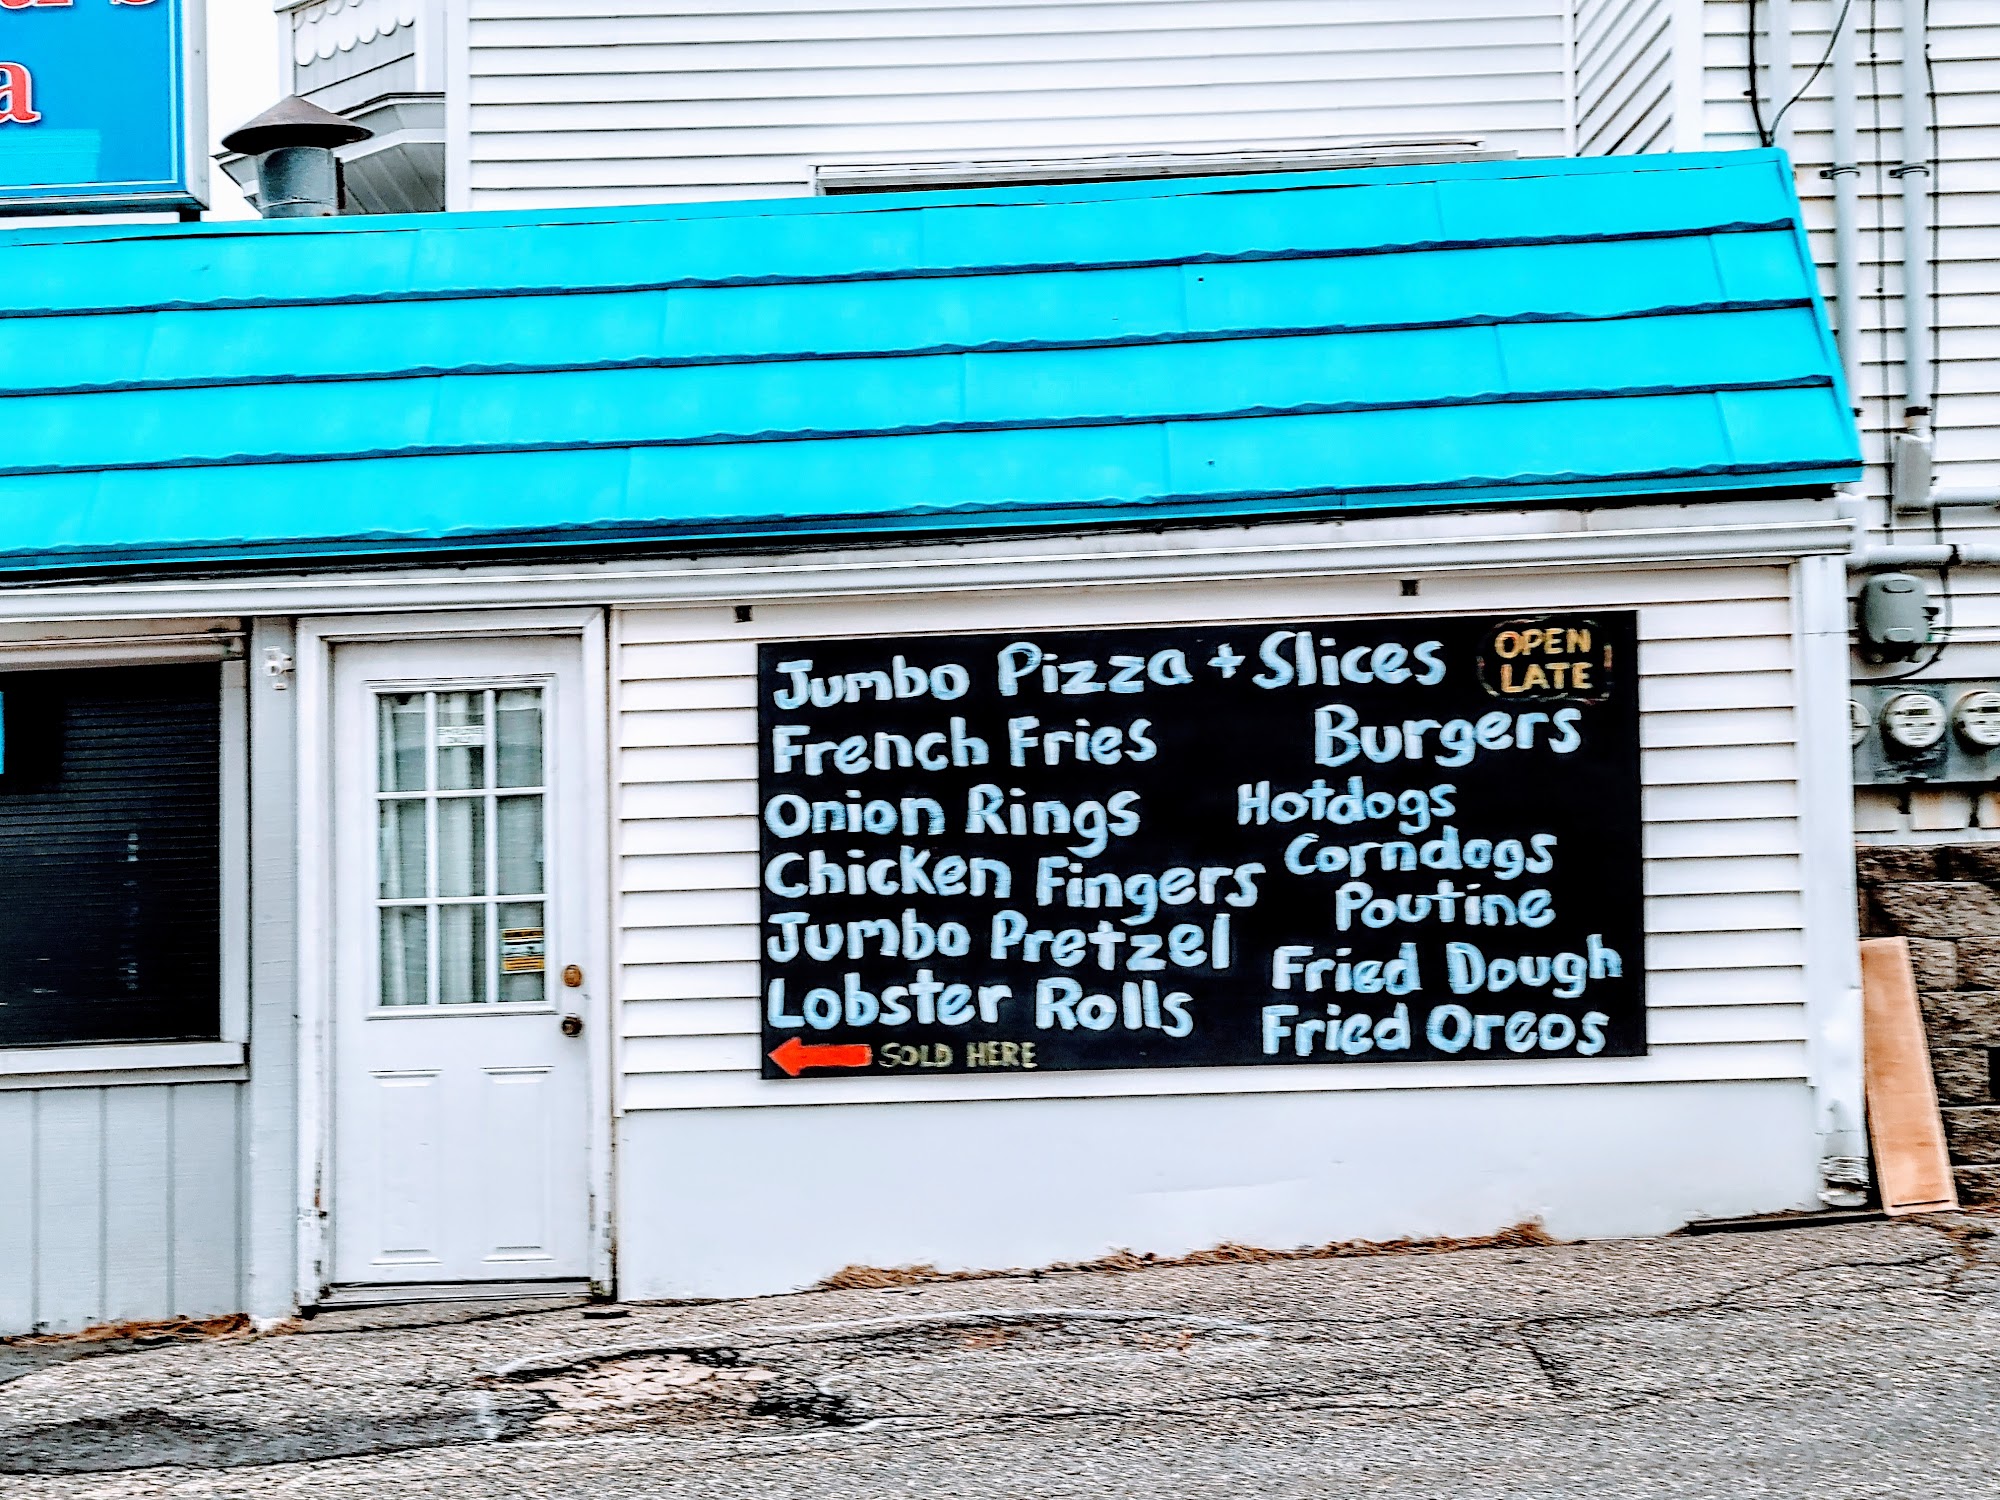 a
Jumbo Pizza + Slices
OPEN
LATE
French Fries
Burgers
Onion Rings
Hotdogs
Chicken Fingers
Corndogs
Poutine
Jumbo Pretzel
Fried Dough
Lobster Rolls
Fried Oreos
SOLD HERE